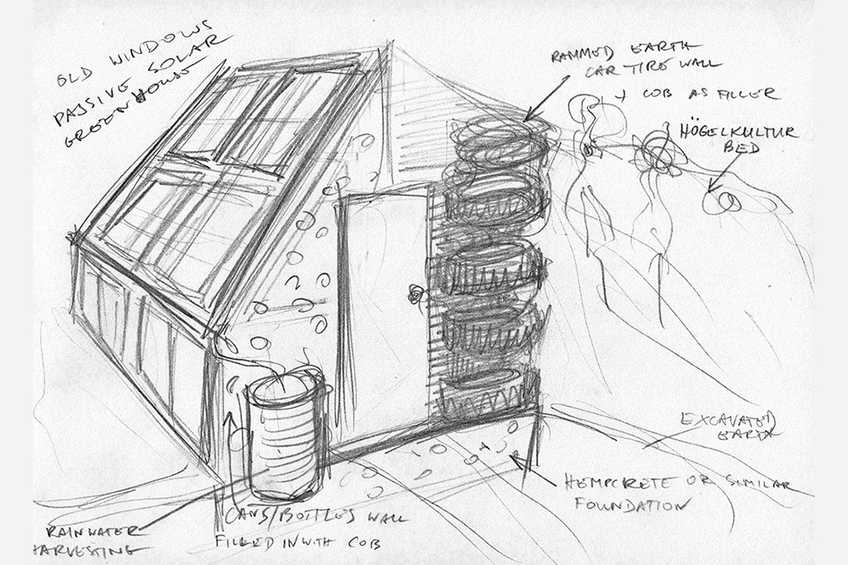 OLD WINDOWS
PASSIVE SOLAR
GREENHOUSE
RAMMED EARTH
CAR TIRE WALL
+ COB AS FILLER
HÖGELKULTUR
BED
EXCAVATED
EARTH
HEMPCRETE OR SIMILAR
FOUNDATION
CANS/BOTTLES WALL
FILLED IN WITH COB
RAINWATER
HARVESTING